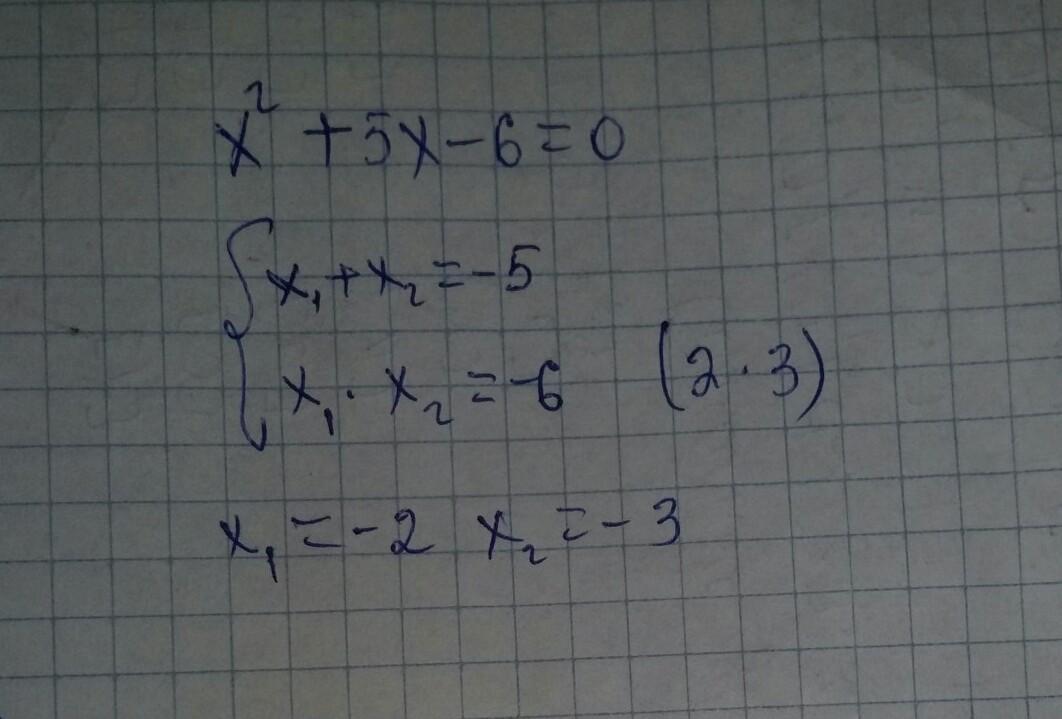 x² + 5x - 6 = 0
{ x₁ + x₂ = -5
x₁ · x₂ = -6 (2 · 3)
x₁ = -2 x₂ = -3